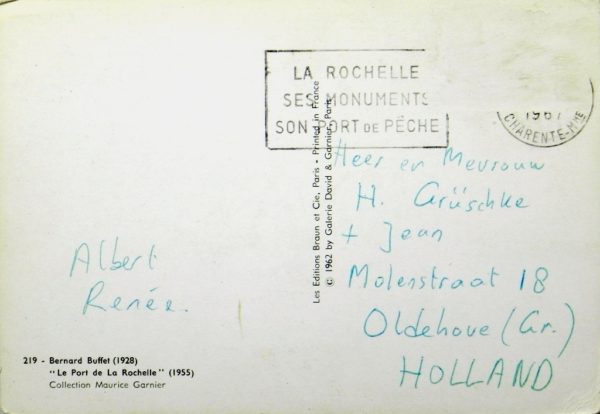 LA ROCHELLE
SES MONUMENTS
SON PORT DE PÊCHE
1967
CHARENTE-Mme
Les Editions Braun et Cie, Paris - Printed in France
© 1962 by Galerie David & Garnier, Paris
Heer en Mevrouw
H. Grüschke
+ Jean
Molenstraat 18
Oldehove (Gr.)
HOLLAND
Albert
Renée.
219 - Bernard Buffet (1928)
"Le Port de La Rochelle" (1955)
Collection Maurice Garnier